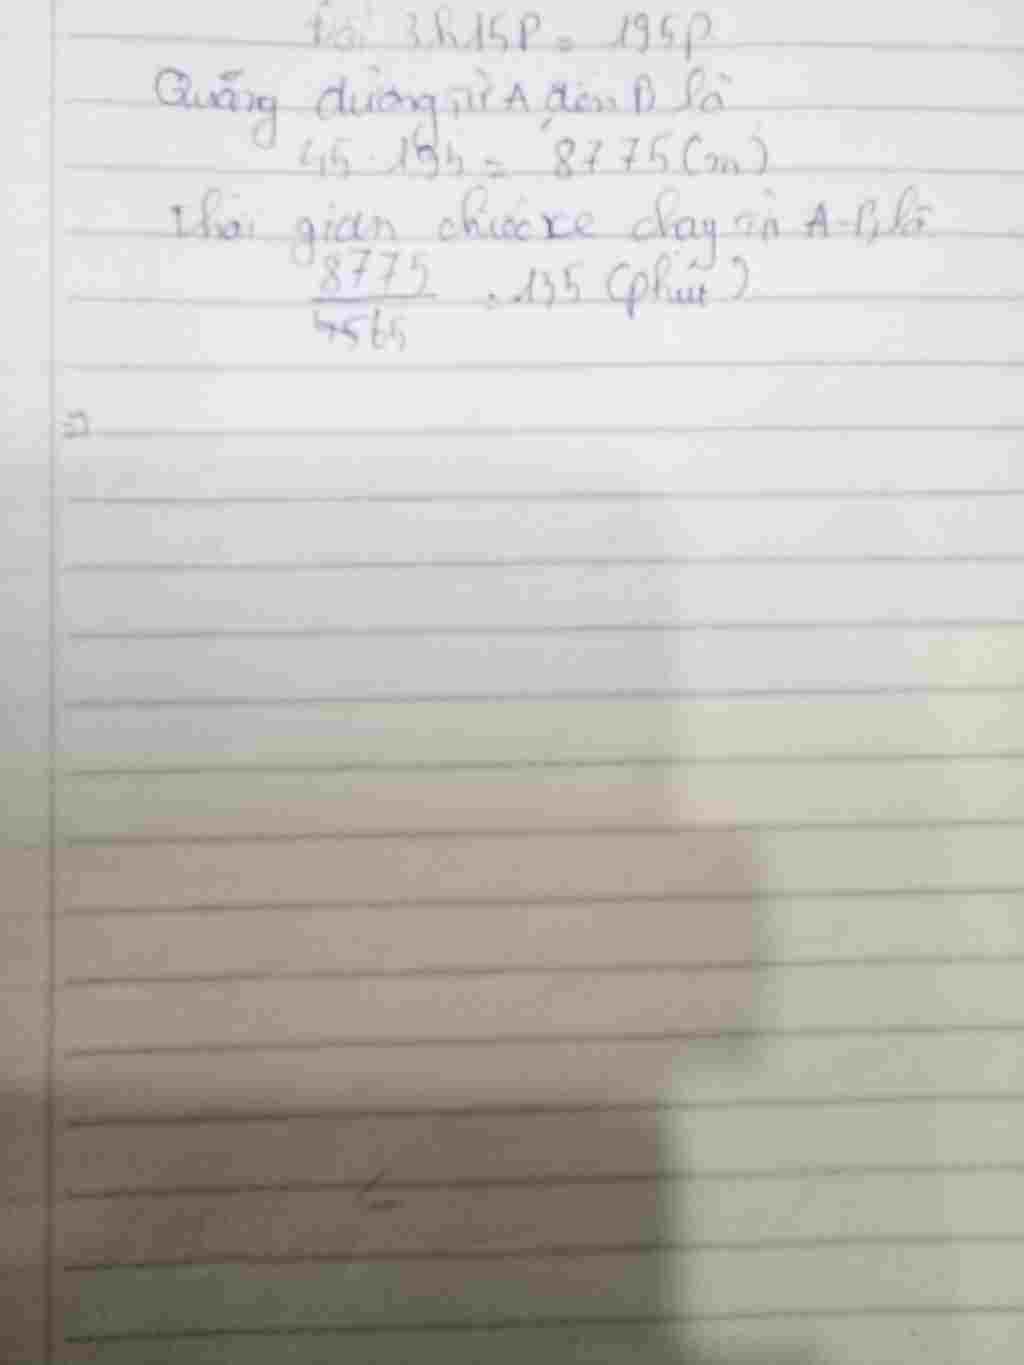 Đổi 3h15P = 195p
Quãng đường từ A đến B là
45 . 195 = 8775 (m)
Thời gian chiếc xe chạy từ A-B là
8775
65 = 135 (phút)
=>